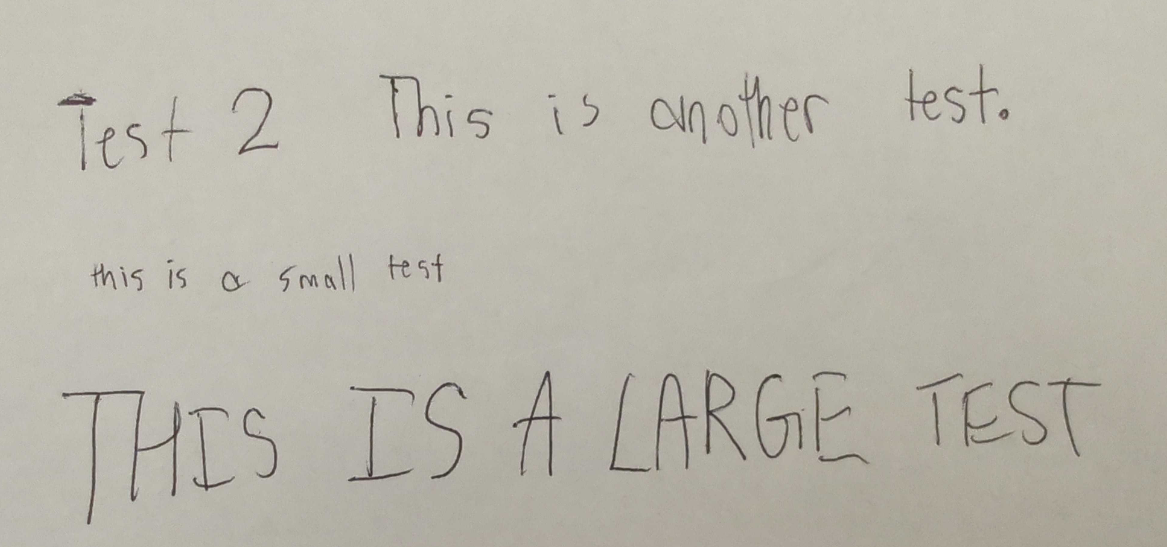 Test 2 This is another test.
this is a small test
THIS IS A LARGE TEST